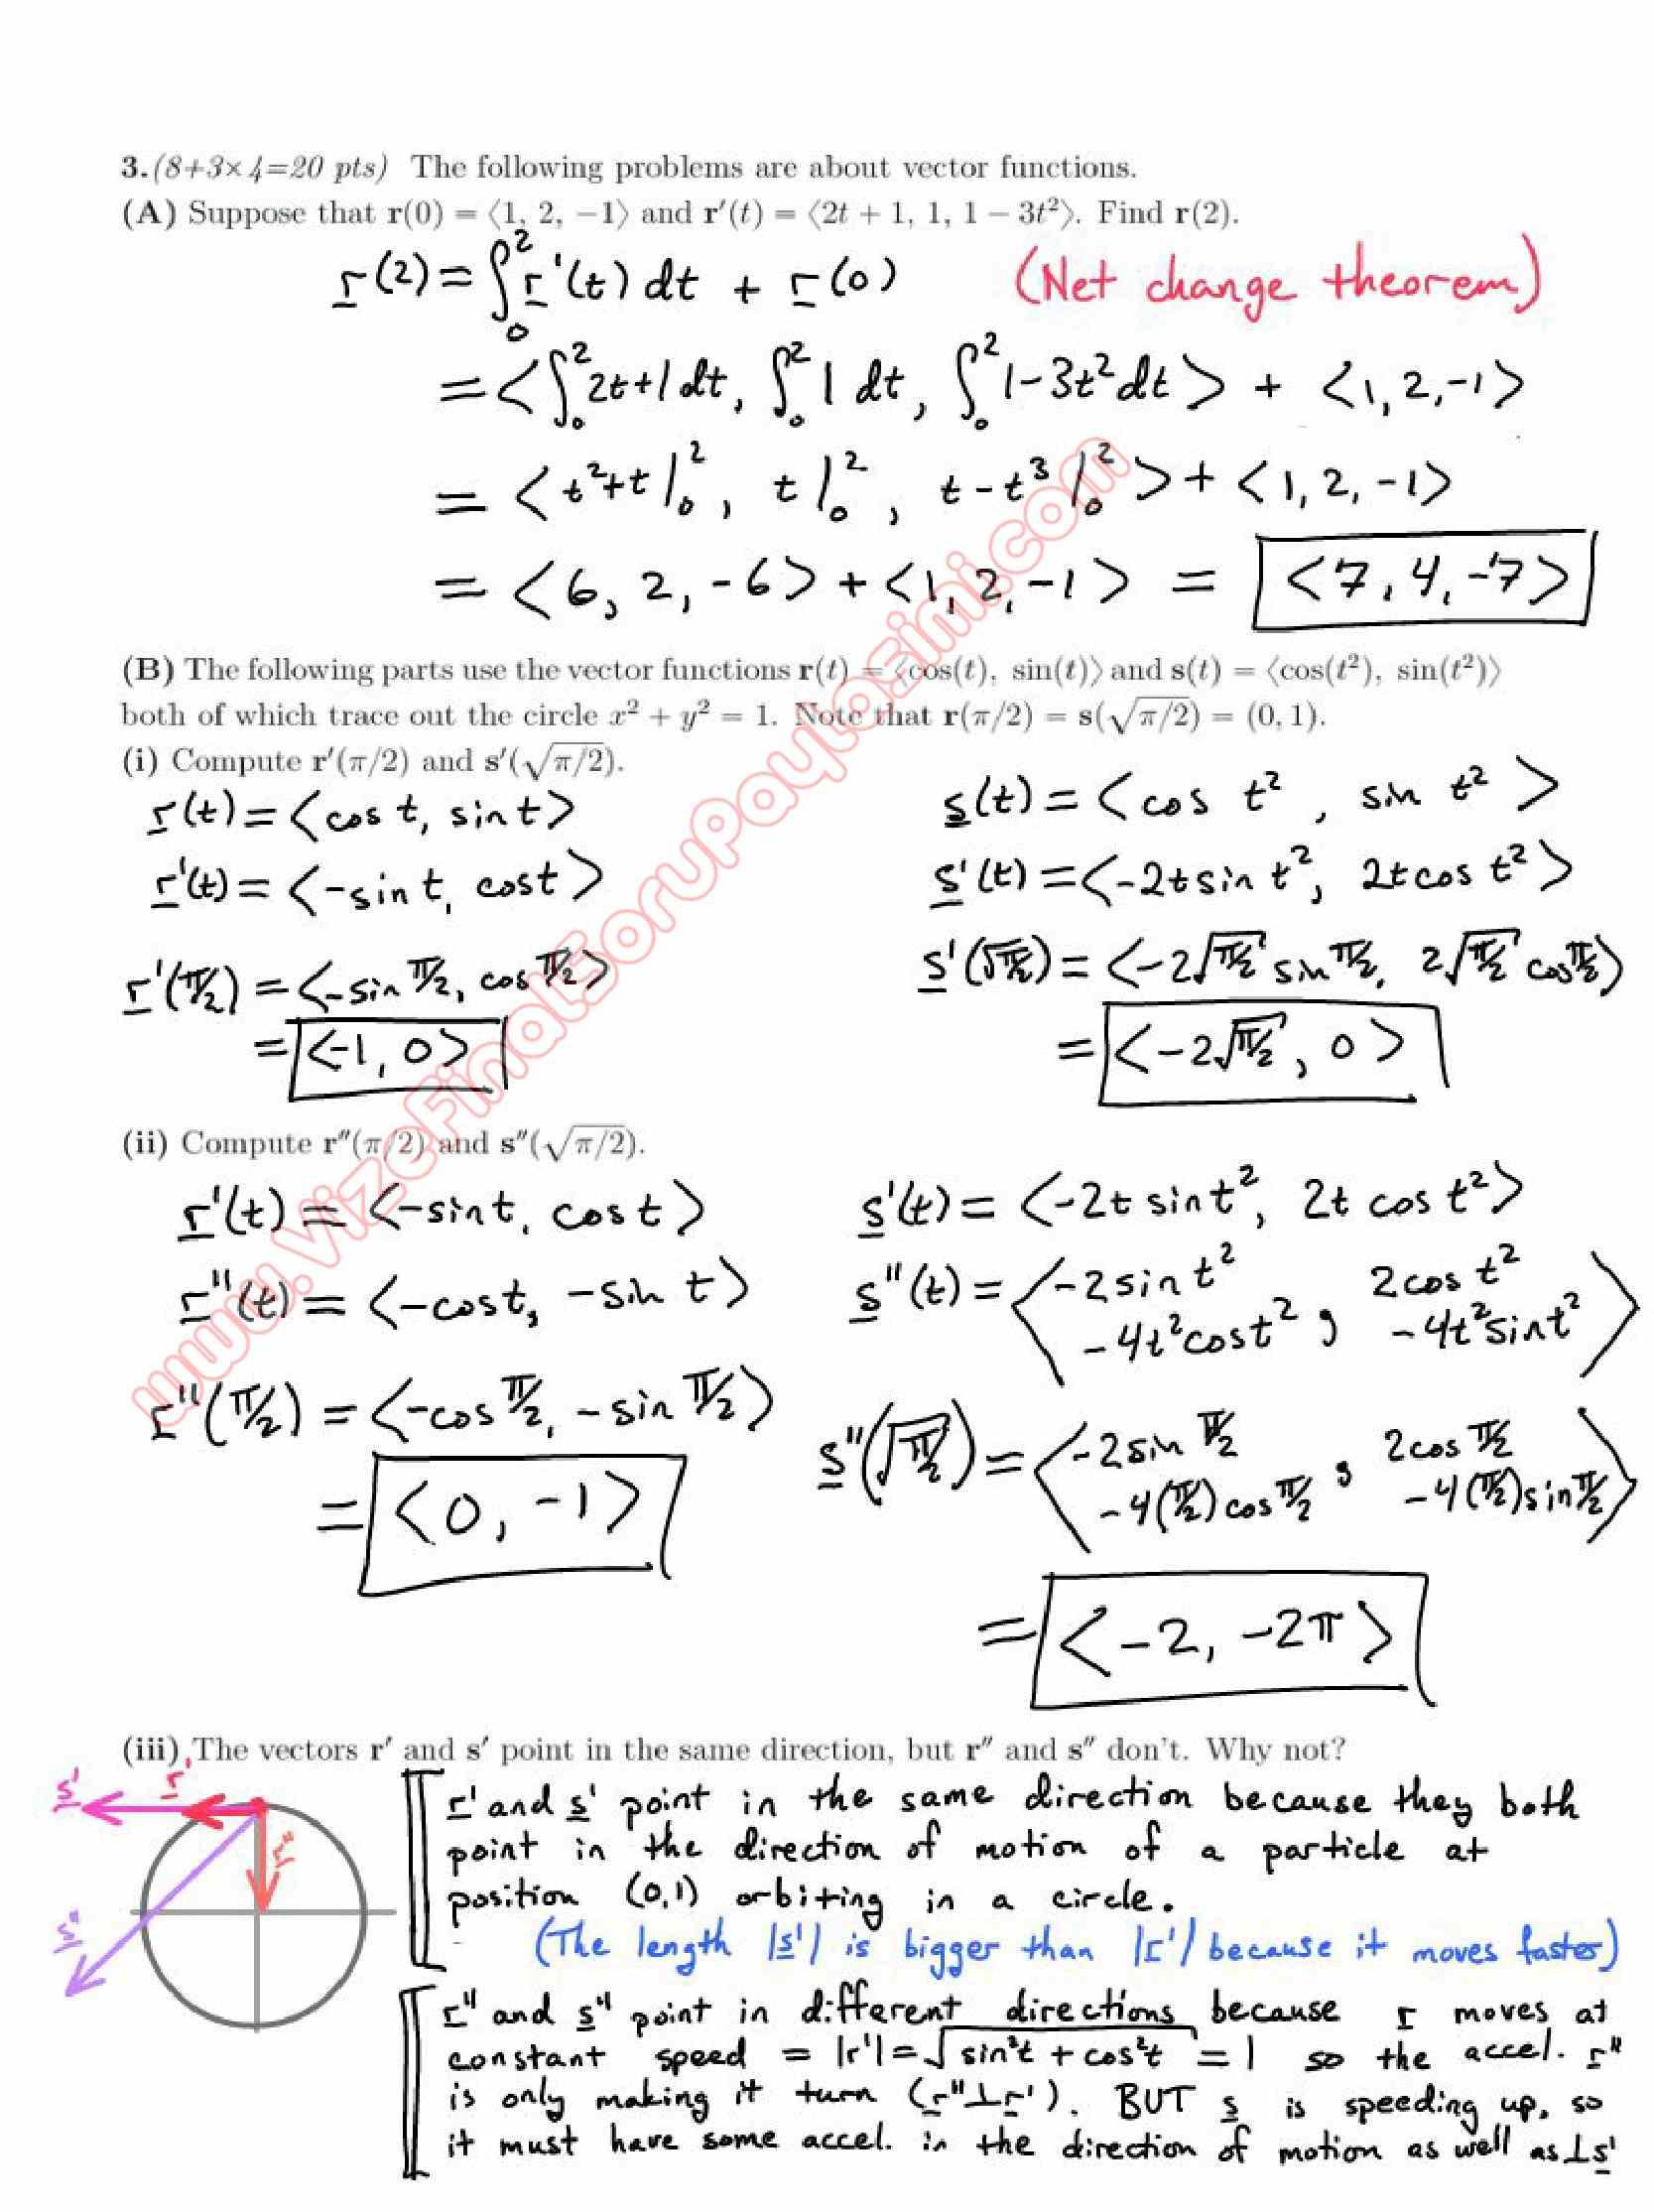 3.(8+3×4=20 pts) The following problems are about vector functions.
(A) Suppose that r(0) = ⟨1, 2, −1⟩ and r′(t) = ⟨2t + 1, 1, 1 − 3t²⟩. Find r(2).
r(2) = ∫₀² r'(t) dt + r(0) (Net change theorem)
= <∫₀² 2t+1 dt, ∫₀² 1 dt, ∫₀² 1-3t² dt> + <1, 2, -1>
= <t²+t|₀², t|₀², t-t³|₀²> + <1, 2, -1>
= <6, 2, -6> + <1, 2, -1> = <7, 4, -7>
(B) The following parts use the vector functions r(t) = ⟨cos(t), sin(t)⟩ and s(t) = ⟨cos(t²), sin(t²)⟩
both of which trace out the circle x² + y² = 1. Note that r(π/2) = s(√(π/2)) = (0, 1).
(i) Compute r′(π/2) and s′(√(π/2)).
r(t) = <cos t, sin t> s(t) = <cos t², sin t²>
r'(t) = <-sin t, cos t> s'(t) = <-2t sin t², 2t cos t²>
r'(π/2) = <-sin π/2, cos π/2> s'(√π/2) = <-2√π/2 sin π/2, 2√π/2 cos π/2>
= <-1, 0> = <-2√π/2, 0>
(ii) Compute r″(π/2) and s″(√(π/2)).
r'(t) = <-sin t, cos t> s'(t) = <-2t sin t², 2t cos t²>
r"(t) = <-cos t, -sin t> s"(t) = <-2 sin t² - 4t² cos t², 2 cos t² - 4t² sin t²>
r"(π/2) = <-cos π/2, -sin π/2> s"(√π/2) = <-2 sin π/2 - 4(π/2) cos π/2, 2 cos π/2 - 4(π/2) sin π/2>
= <0, -1>
= <-2, -2π>
(iii) The vectors r′ and s′ point in the same direction, but r″ and s″ don't. Why not?
s' r' r" s"
r' and s' point in the same direction because they both
point in the direction of motion of a particle at
position (0,1) orbiting in a circle.
(The length |s'| is bigger than |r'| because it moves faster)
r" and s" point in different directions because r moves at
constant speed = |r'| = √sin²t + cos²t = 1 so the accel. r"
is only making it turn (r"⊥r'). BUT s is speeding up, so
it must have some accel. in the direction of motion as well as ⊥s'
www.VizeFinalSoruPaylosimi.com